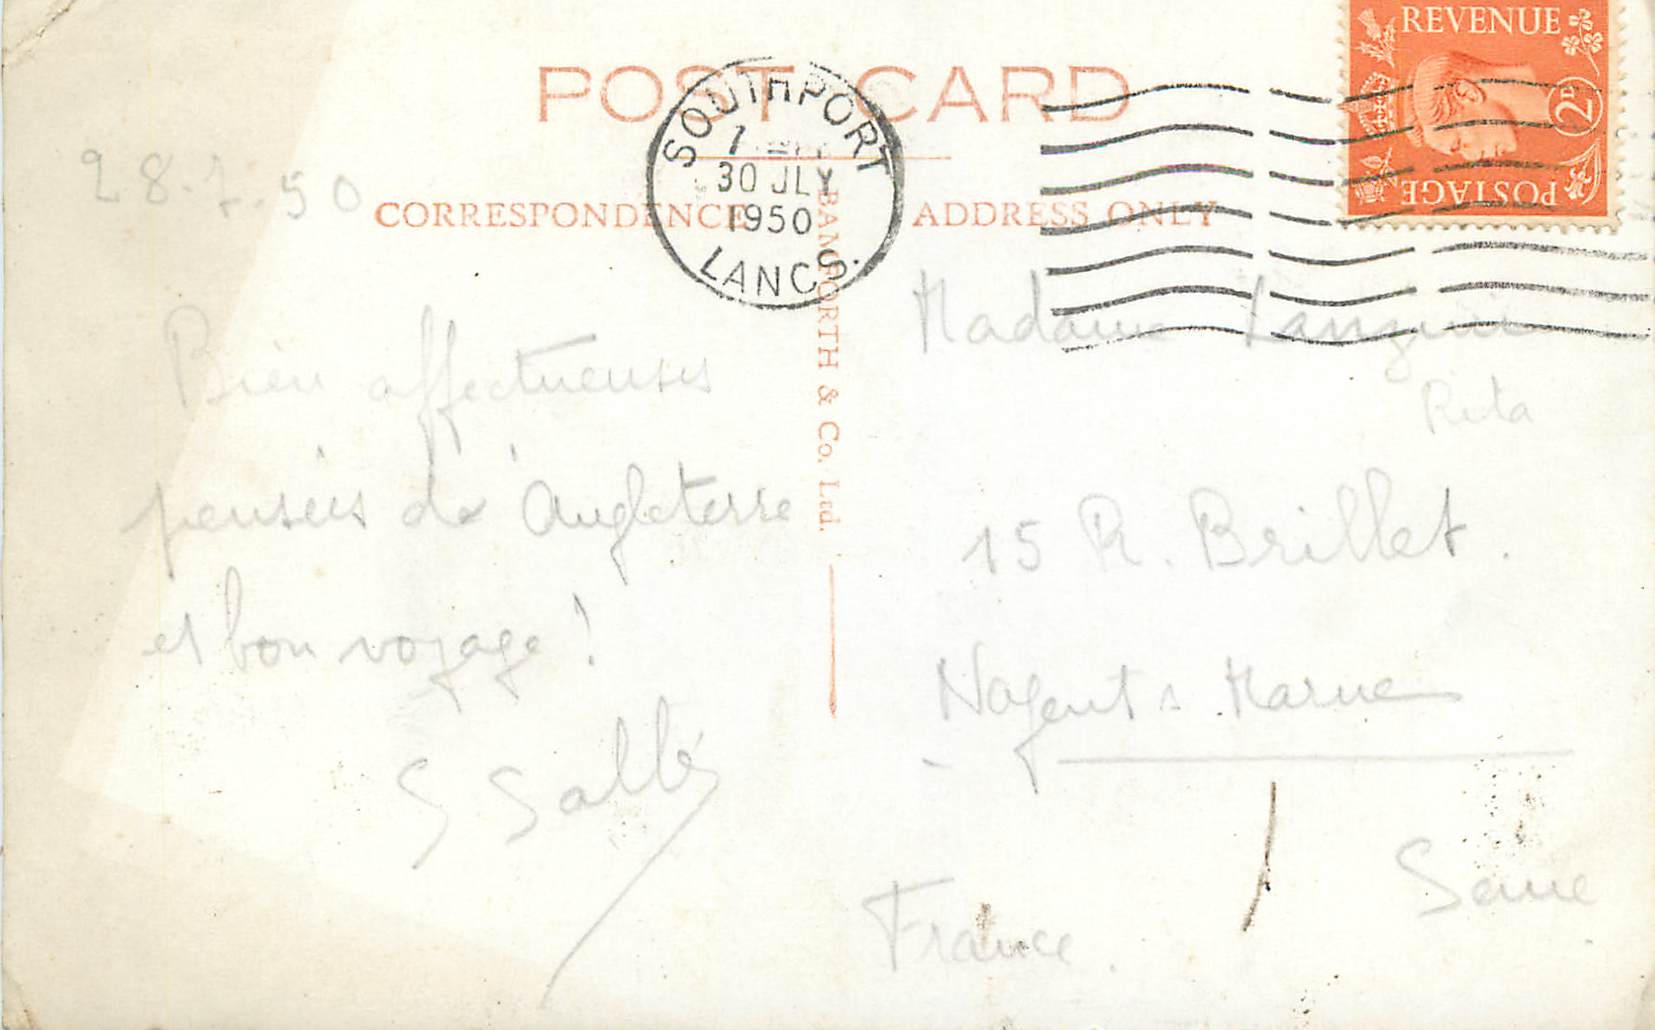 POST CARD
CORRESPONDENCE
ADDRESS ONLY
BAMFORTH & Co. Ltd.
SOUTHPORT
30 JLY
1950
LANCS.
REVENUE
2D
POSTAGE
28.7.50
Bien affectueuses
pensées d'Angleterre
et bon voyage!
S Sallé
Madame Lanzini
Rita
15 R. Brillet.
Nogent s Marne
Seine
France.